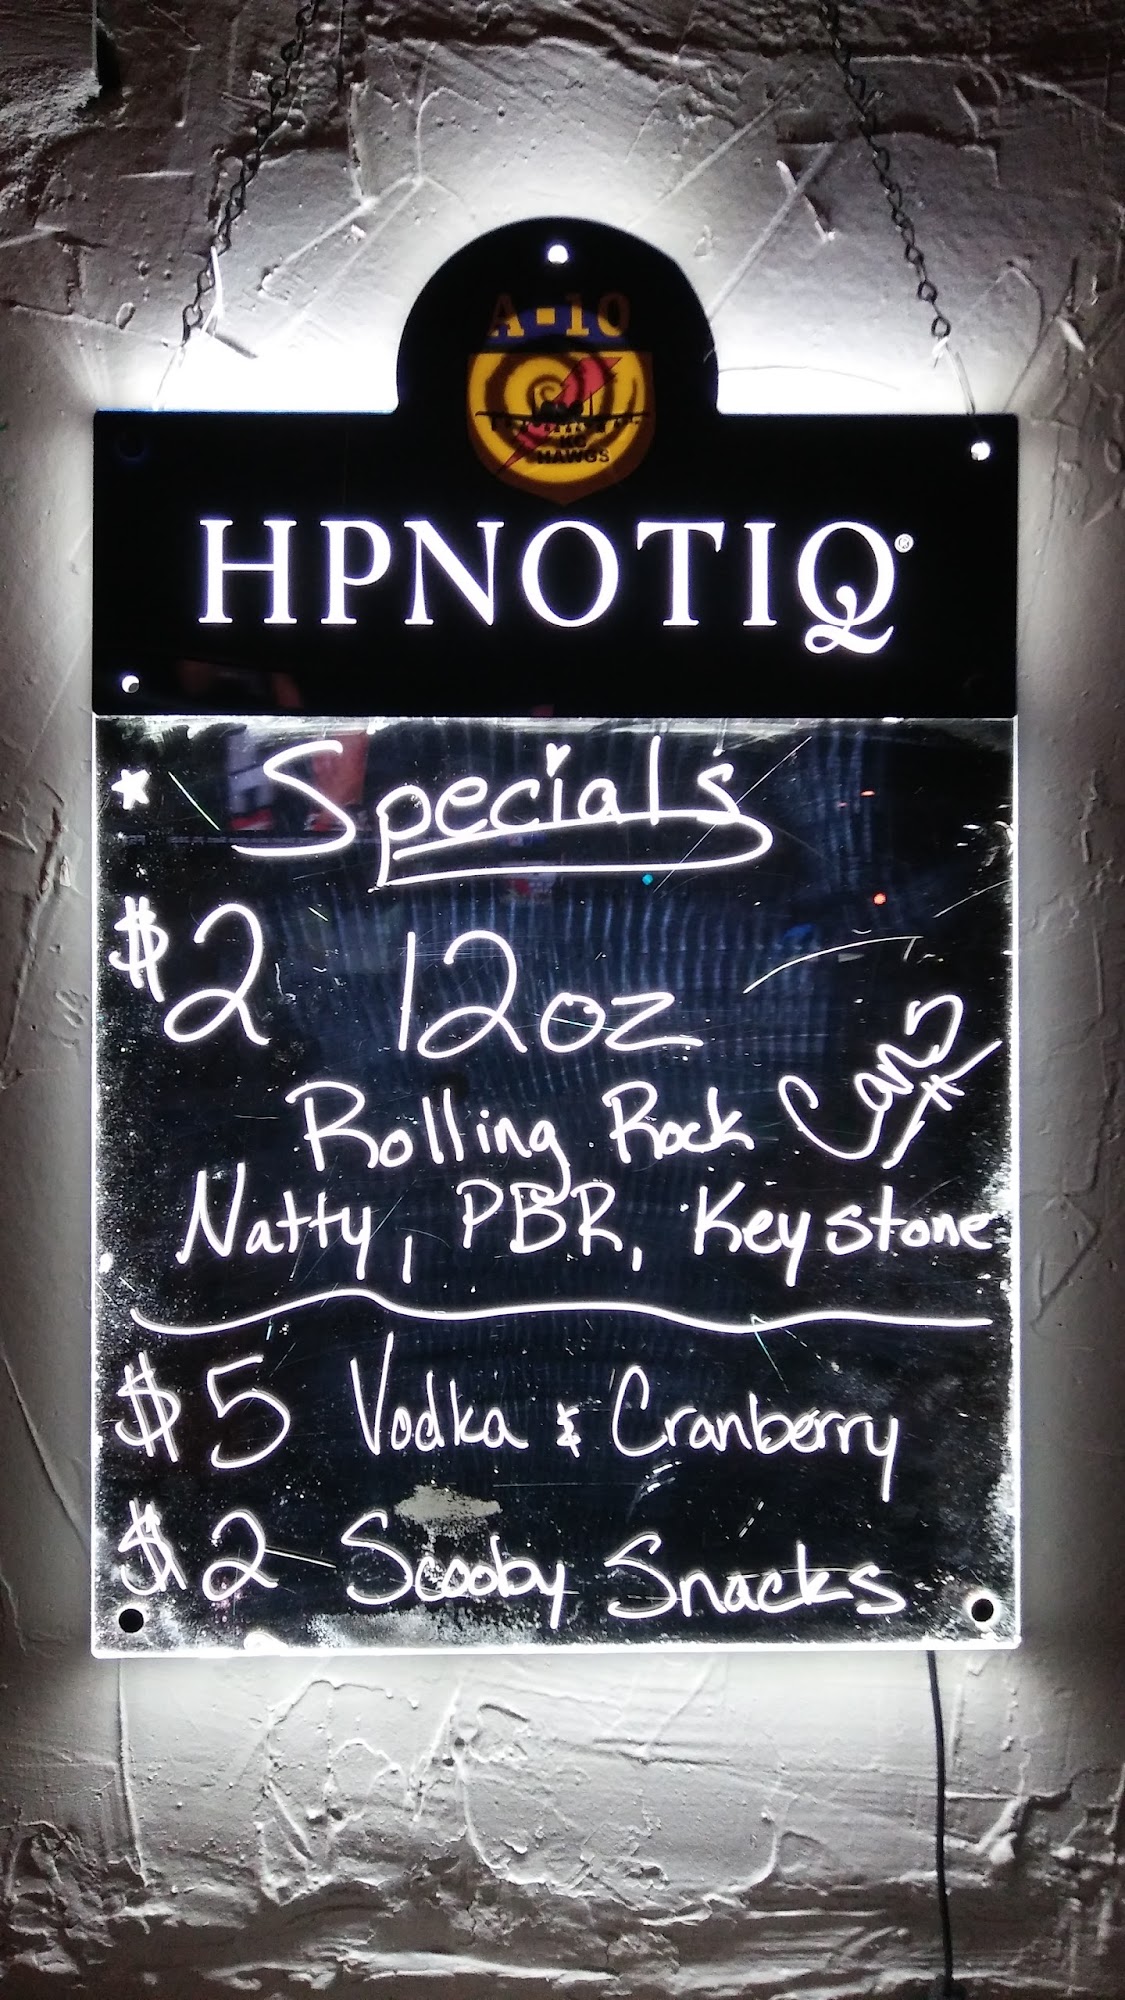 A-10
KC
HAWGS
HPNOTIQ®
Specials
$2 12oz
Rolling Rock Cans
Natty, PBR, Keystone
$5 Vodka & Cranberry
$2 Scooby Snacks